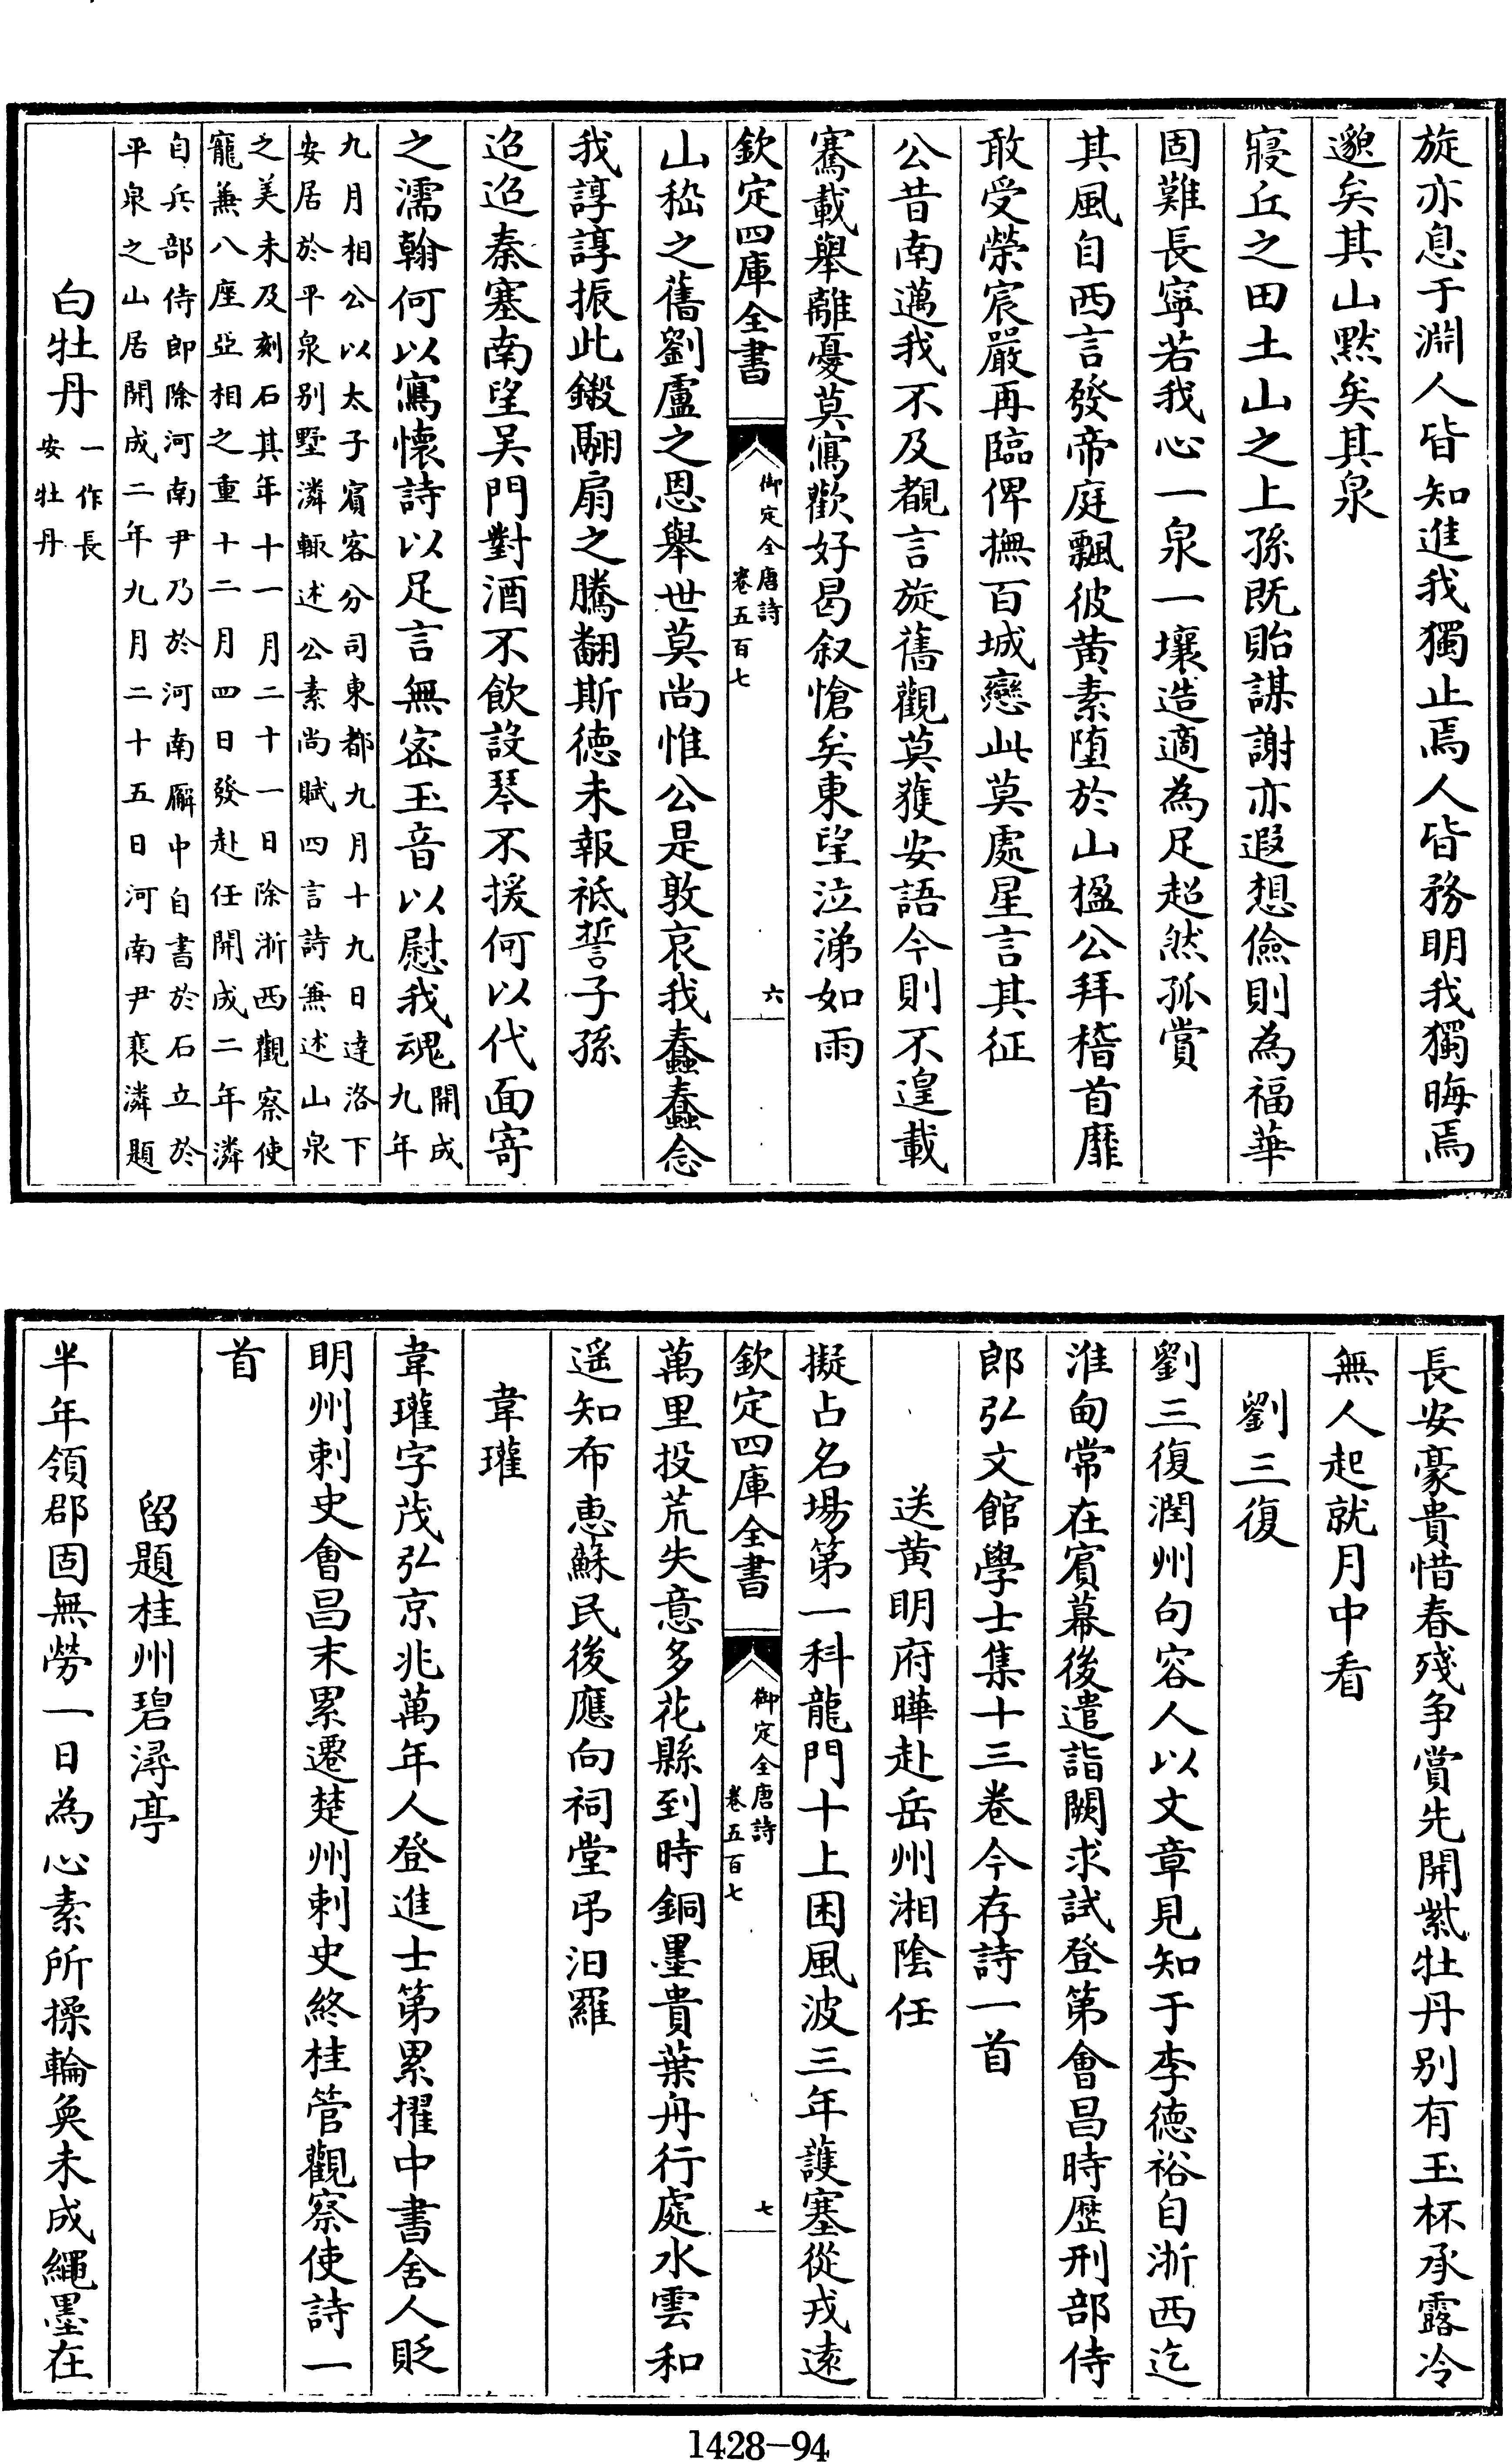 旋亦息于淵人皆知進我獨止焉人皆務明我獨晦焉
邈矣其山黙矣其泉
寢丘之田土山之上孫既貽謀謝亦遐想儉則為福華
固難長寧若我心一泉一壤造適為足超然孤賞
其風自西言發帝庭飄彼黄素堕於山楹公拜稽首靡
敢受榮宸嚴再臨俾撫百城戀此莫處星言其征
公昔南邁我不及覩言旋舊觀莫獲安語今則不遑載
騫載舉離憂莫寫歡好曷叙愴矣東望泣涕如雨
欽定四庫全書
御定全唐詩
卷五百七
六
山嵇之舊劉盧之恩舉世莫尚惟公是敦哀我蠢蠢念
我諄諄振此鎩翮扇之騰翻斯徳未報祗誓子孫
迢迢秦塞南望吴門對酒不飲設琴不援何以代面寄
之濡翰何以寫懷詩以足言無密玉音以慰我魂
開成
九年
九月相公以太子賓客分司東都九月十九日達洛下
安居於平泉别墅潾輙述公素尚賦四言詩兼述山泉
之美未及刻石其年十一月二十一日除浙西觀察使
寵兼八座亞相之重十二月四日發赴任開成二年潾
自兵部侍郎除河南尹乃於河南廨中自書於石立於
平泉之山居開成二年九月二十五日河南尹裴潾題
白牡丹
一作長
安牡丹
長安豪貴惜春殘争賞先開紫牡丹别有玉杯承露冷
無人起就月中看
劉三復
劉三復潤州句容人以文章見知于李徳裕自浙西迄
淮甸常在賓幕後遣詣闕求試登第會昌時歴刑部侍
郎弘文館學士集十三卷今存詩一首
送黄明府曄赴岳州湘隂任
擬占名場第一科龍門十上困風波三年護塞從戎逺
欽定四庫全書
御定全唐詩
卷五百七
七
萬里投荒失意多花縣到時銅墨貴葉舟行處水雲和
遥知布惠蘇民後應向祠堂弔汨羅
韋瓘
韋瓘字茂弘京兆萬年人登進士第累擢中書舍人貶
明州刺史會昌末累遷楚州刺史終桂管觀察使詩一
首
留題桂州碧潯亭
半年領郡固無勞一日為心素所操輪奐未成繩墨在
1428-94